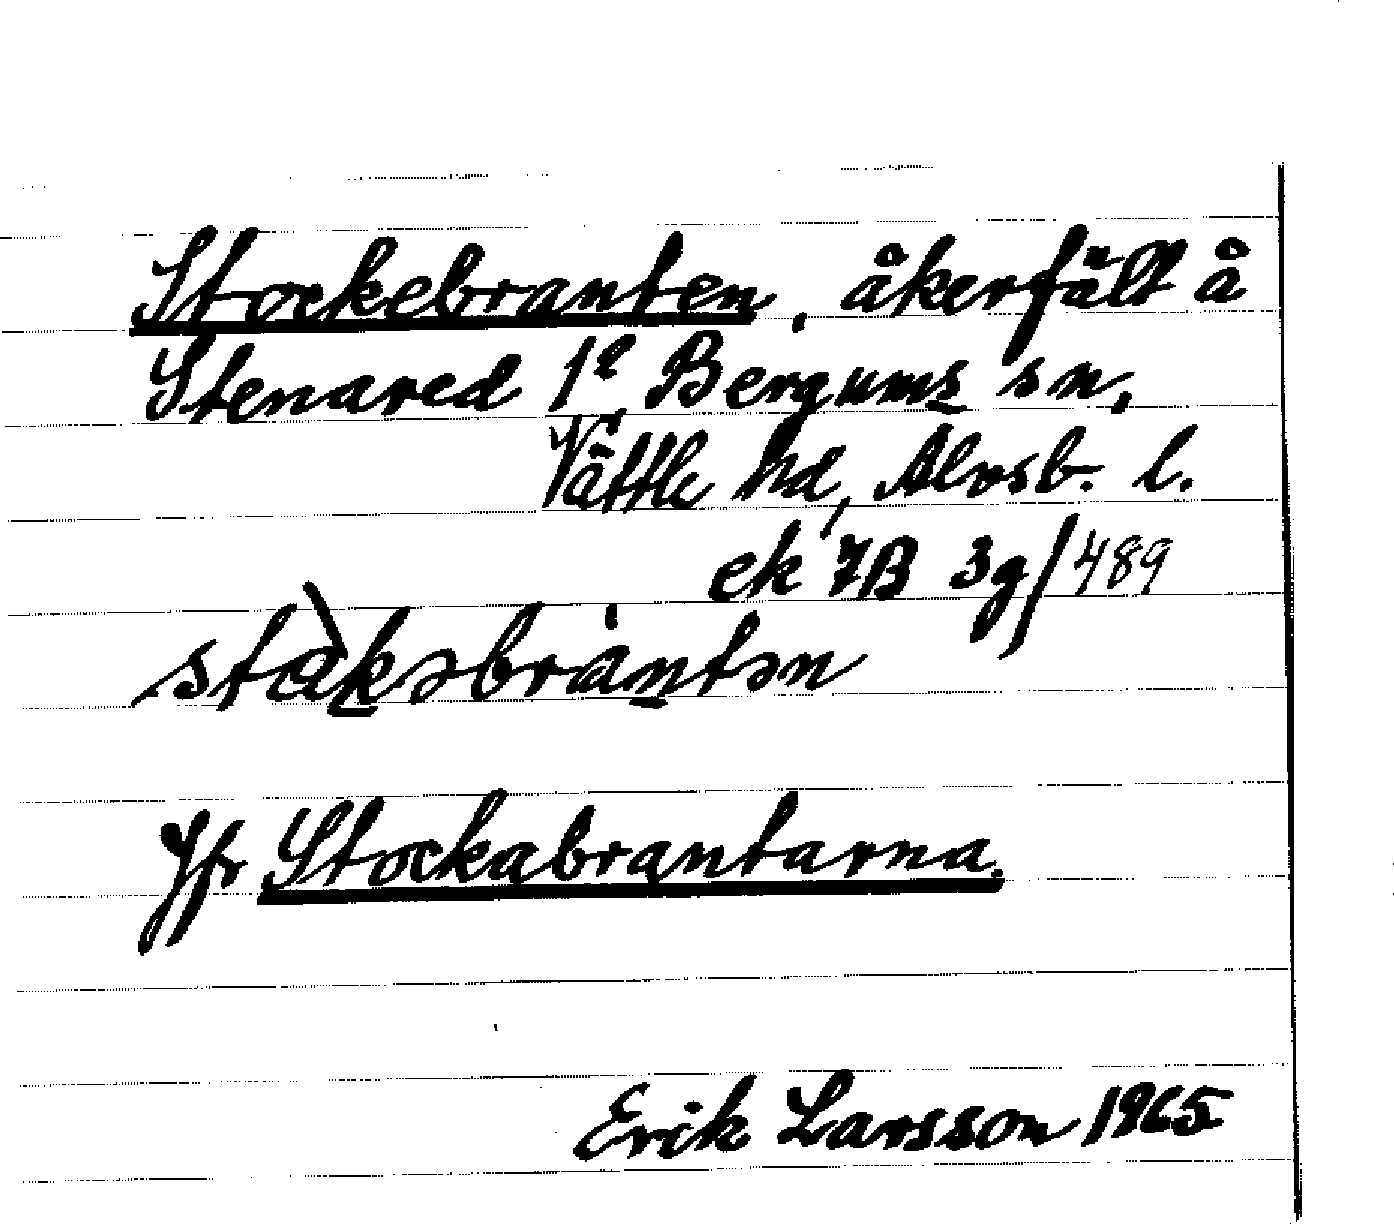 Stockebranten, åkerfält å
Stenared 1², Bergums sn,
Vättle hd, Älvsb. l.
ek 7B 3g/489
stàkəbrantən
Jfr Stockabrantarna.
Erik Larsson 1965